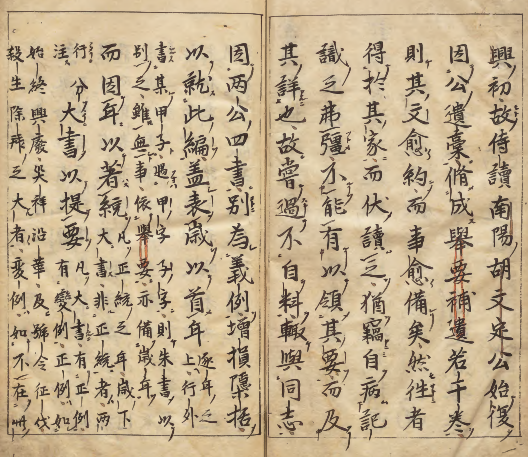 興初故侍讀南陽胡文定公始復
因公遺稾脩成舉要補遺若干卷
則其文愈約而事愈備矣然徃者
得於其家而伏讀之猶竊自病記
識之弗彊不能有以領其要而及
其詳也故嘗過不自料輙與同志
因兩公四書別為義例增損檃括
以就此編盖表歲以首年逐年之上行外
書某甲子遇甲字子字則朱書以
別之雖無事依舉要亦備歲年
而因年以著統凡正統之年歲下大書非正統者兩
行分注大書以提要凡大書有正例有變例正例如
始終興廢災祥沿革及號令征伐
殺生除拜之大者變例如不在此